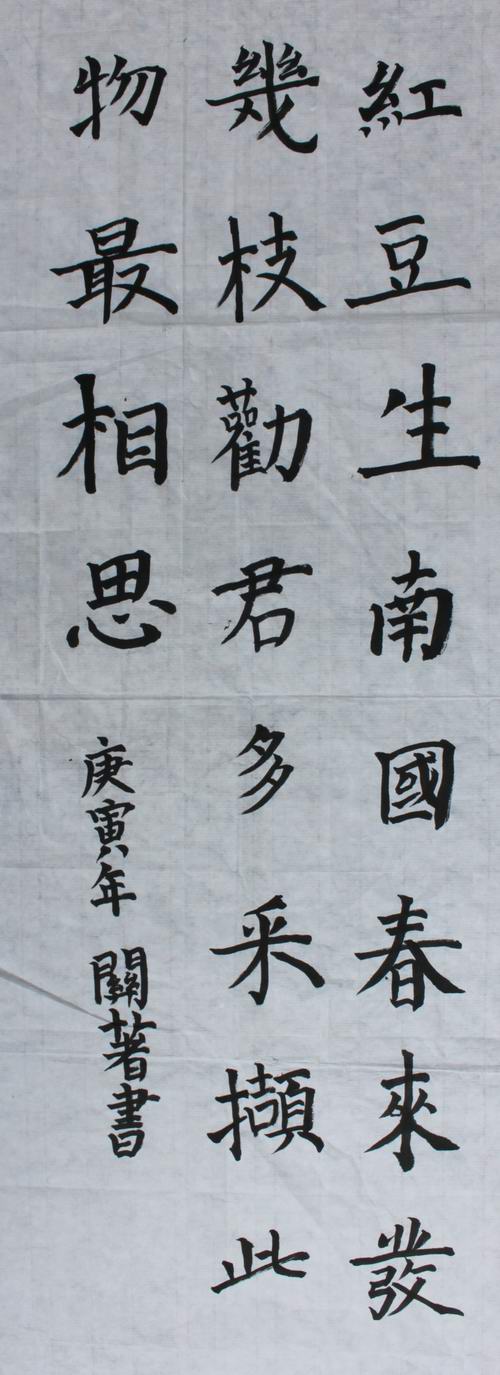 紅豆生南國春來發
幾枝勸君多采擷此
物最相思
庚寅年 關著書